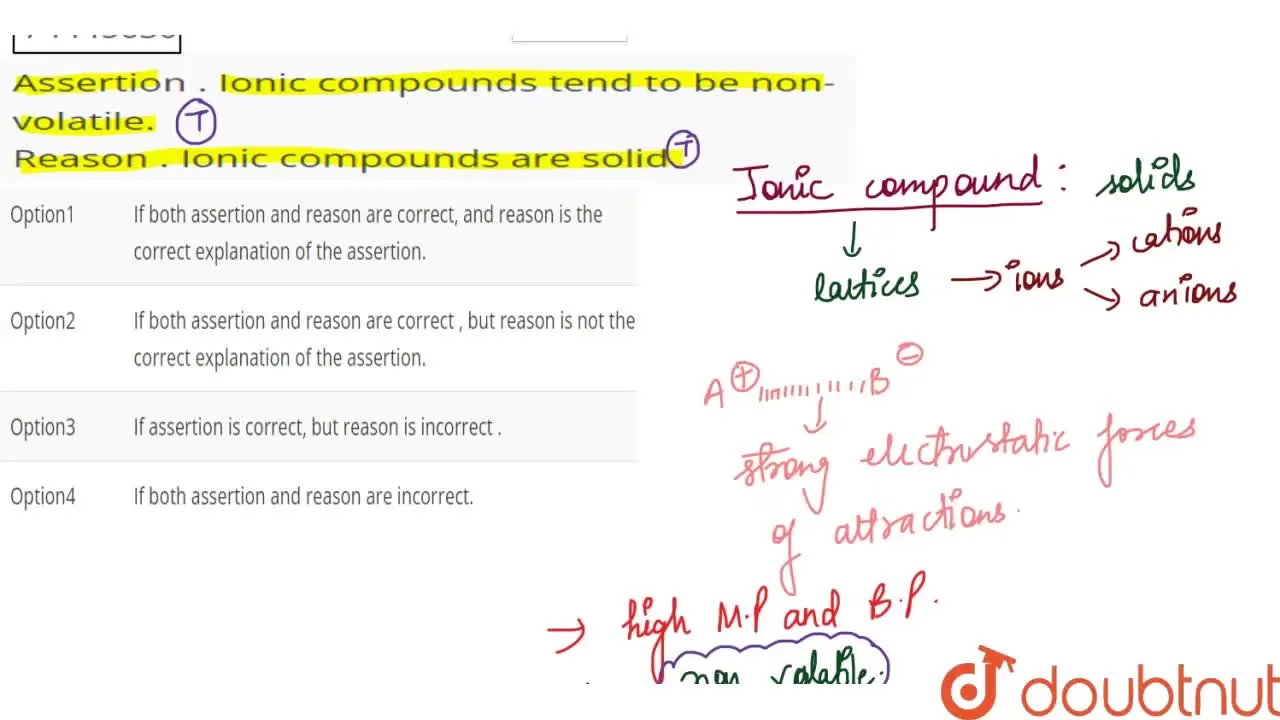 Assertion . Ionic compounds tend to be non-
volatile. T
Reason . Ionic compounds are solid T
Option1 If both assertion and reason are correct, and reason is the
correct explanation of the assertion.
Option2 If both assertion and reason are correct , but reason is not the
correct explanation of the assertion.
Option3 If assertion is correct, but reason is incorrect .
Option4 If both assertion and reason are incorrect.
Ionic compound : solids
↓
lattices → ions → cations
→ anions
A ⊕ B ⊖
↓
strong electrostatic forces
of attractions.
→ high M.P and B.P.
non volatile.
doubtnut